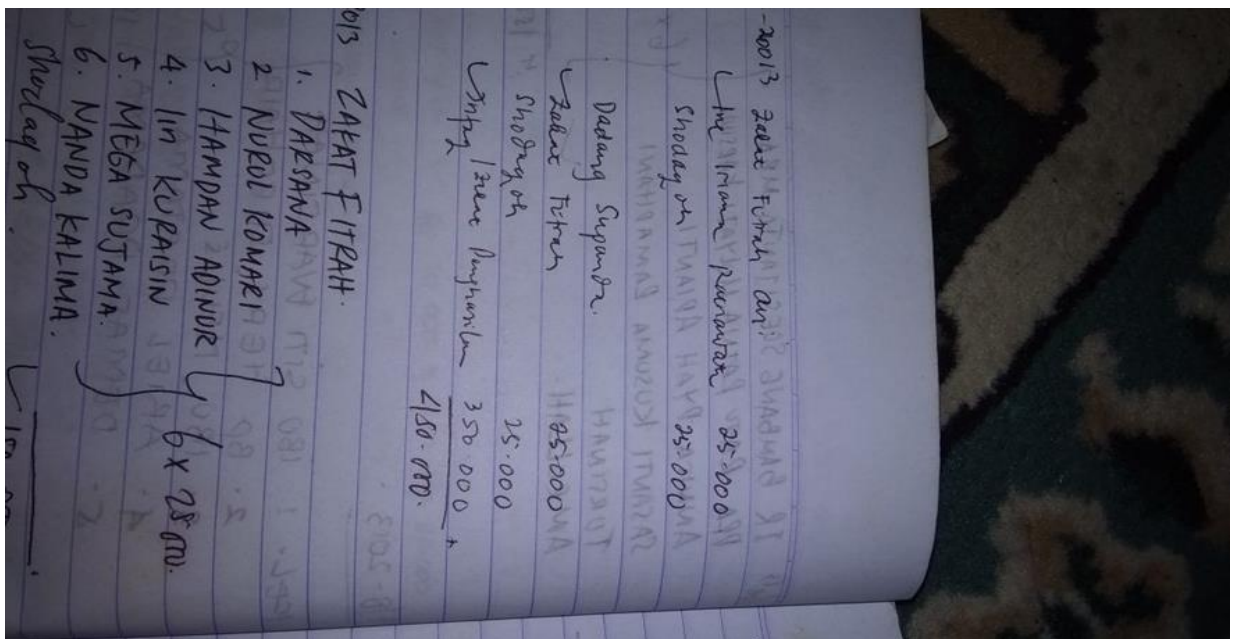 -20013 Zakat Fitrah an:
Ine Imana 25.000
Shodaqoh 25.000
Dadang Supanda.
Zakat Fitrah 25.000
Shodaqoh 25.000
Infaq / Penghasilan 350.000 +
450.000.
013 ZAKAT FITRAH.
1. DARSANA
2. NURUL KOMARI
3. HAMDAN ADINUR
4. IIN KURAISIN 6 x 25.000.
5. MEGA SUTAMA.
6. NANDA KALIMA.
Shodaqoh.